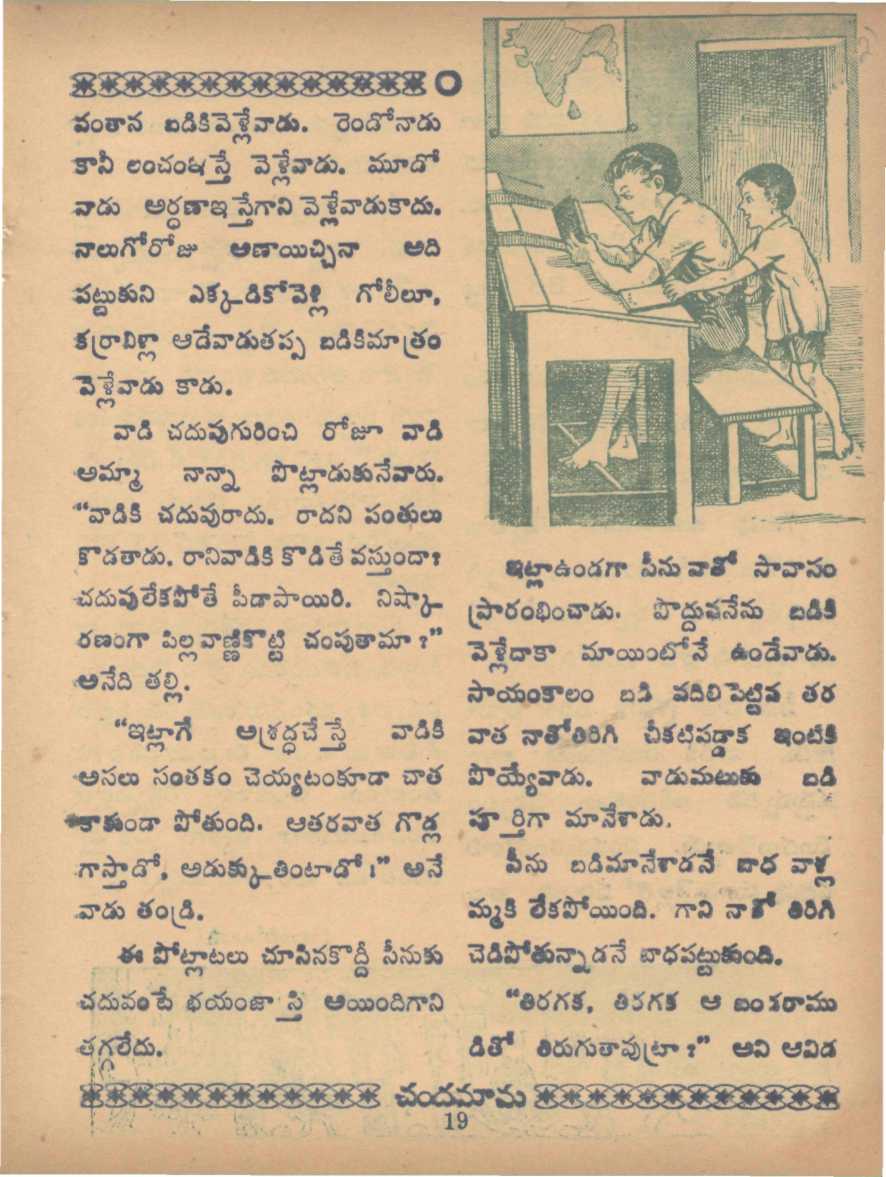 వంతాన బడికివెళ్లేవాడు. రెండోనాడు
కానీ లంచంఇస్తే వెళ్లేవాడు. మూడో
నాడు అర్ధణాఇస్తేగాని వెళ్లేవాడుకాదు.
నాలుగోరోజు అణాయిచ్చినా అది
పట్టుకుని ఎక్కడికోవెళ్లి గోలీలూ,
కర్రాబిళ్లా ఆడేవాడుతప్ప బడికిమాత్రం
వెళ్లేవాడు కాడు.
వాడి చదువుగురించి రోజూ వాడి
అమ్మా నాన్నా పొట్లాడుకునేవారు.
“వాడికి చదువురాదు. రాదని పంతులు
కొడతాడు. రానివాడికి కొడితే వస్తుందా?
చదువులేకపోతే పీడాపాయిరి. నిష్కా
రణంగా పిల్లవాణ్ణికొట్టి చంపుతామా?”
అనేది తల్లి.
“ఇట్లాగే అశ్రద్ధచేస్తే వాడికి
అసలు సంతకం చెయ్యటంకూడా చాత
కాకుండా పోతుంది. ఆతరవాత గొడ్ల
గాస్తాడో, అడుక్కుతింటాడో!” అనే
వాడు తండ్రి.
ఈ పోట్లాటలు చూసినకొద్దీ సీనుకు
చదువంటే భయంజాస్తి అయిందిగాని
తగ్గలేదు.
ఇట్లాఉండగా సీను నాతో సావాసం
ప్రారంభించాడు. పొద్దుననేను బడికి
వెళ్లేదాకా మాయింటోనే ఉండేవాడు.
సాయంకాలం బడి వదిలిపెట్టిన తర
వాత నాతోతిరిగి చీకటిపడ్డాక ఇంటికి
పొయ్యేవాడు. వాడుమటుకు బడి
పూర్తిగా మానేశాడు.
సీను బడిమానేశాడనే బాధ వాళ్ల
మ్మకి లేకపోయింది. గాని నాతో తిరిగి
చెడిపోతున్నాడనే బాధపట్టుకుంది.
“తిరగక, తిరగక ఆ బంకరాము
డితో తిరుగుతావుట్రా?” అని ఆవిడ
చందమామ
19